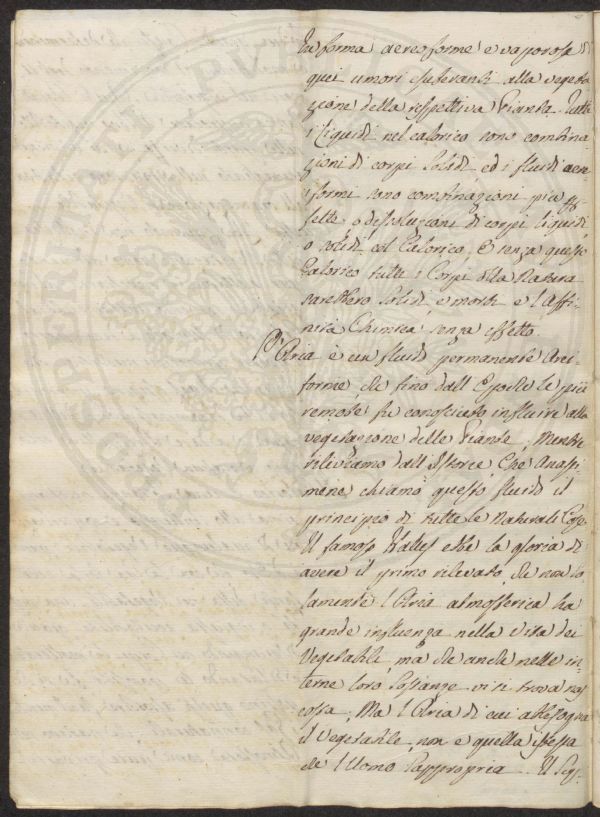 In forma aereoforme e vaporosa di
quei umori esuberanti alla vegeta
zione della respettiva Pianta. Tutti
i Liquidi nel calorico sono combina
zioni di corpi solidi ed i fluidi aeri
formi sono combinazioni più
o dissoluzioni di corpi liquidi
o solidi col Calorico, e senza questo
Calorico tutti i Corpi della Natura
sarebbero solidi e morti e l'Affi-
nità Chimica senza effetto.
L'Aria è un fluido permanente Arei-
forme, che fino dall'Epoche le più
remote fu conosciuto influire alla
vegetazione delle Piante, Mentre
rileviamo dall'Istorie, Che Anassi-
mene chiamò questo fluido il
principio di tutte le Naturali Cose.
Il famoso Halles ebbe la gloria di
avere il primo rilevato, che non so
lamente l'Aria atmosferica ha
grande influenza nella Vita dei
Vegetabili, ma che anche nelle in-
terne loro Sostanze vi si trova nas
cosa, Ma l'Aria di cui abbisogna
il Vegetabile, non è quella istessa
che l'Uomo s'appropria. Il